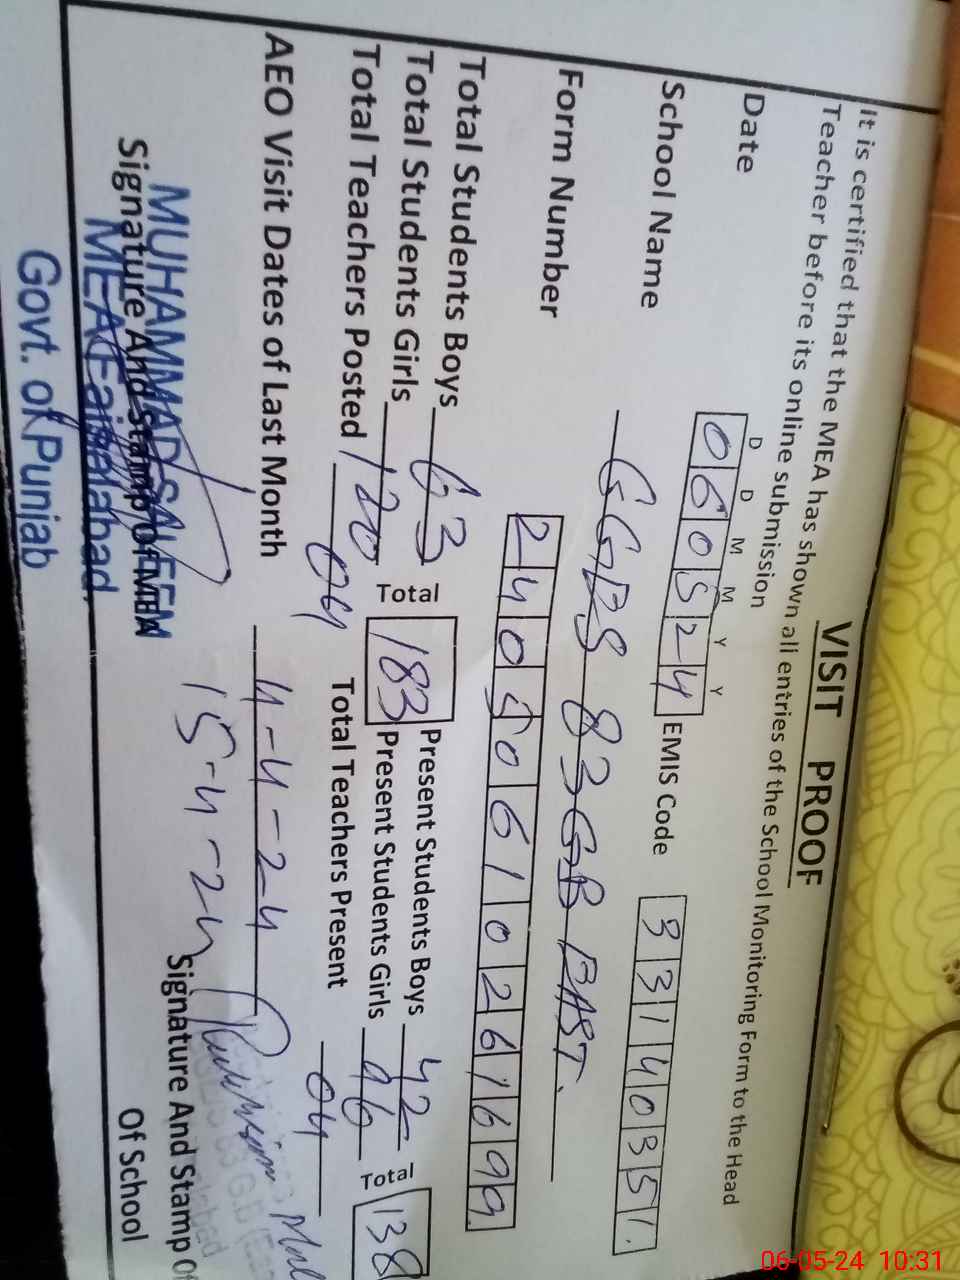 VISIT PROOF
It is certified that the MEA has shown all entries of the School Monitoring Form to the Head
Teacher before its online submission
D D M M Y Y
Date 060524 EMIS Code 33140351
School Name GGPS 83 GB EAST.
Form Number 2405061026 1699
Total Students Boys 63 Total 183 Present Students Boys 42 Total 138
Total Students Girls 120 Present Students Girls 96
Total Teachers Posted 04 Total Teachers Present 04
AEO Visit Dates of Last Month 4-4-24
15-4-24
Signature And Stamp Of MEA
MUHAMMAD SALEEM
MEA Faisalabad.
Govt. of Punjab
Signature And Stamp Of
Of School
06-05-24 10:31